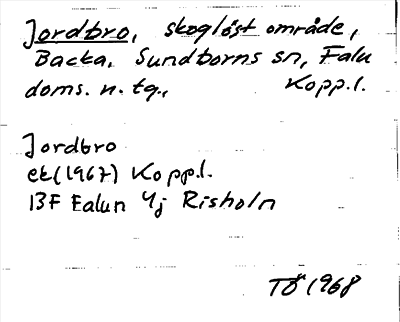 Jordbro, skoglöst område,
Backa, Sundborns sn, Falu
doms. n. tg., Kopp.l.
Jordbro
ek(1967) Kopp.l.
13F Falun 4j Risholn
TÖ 1968